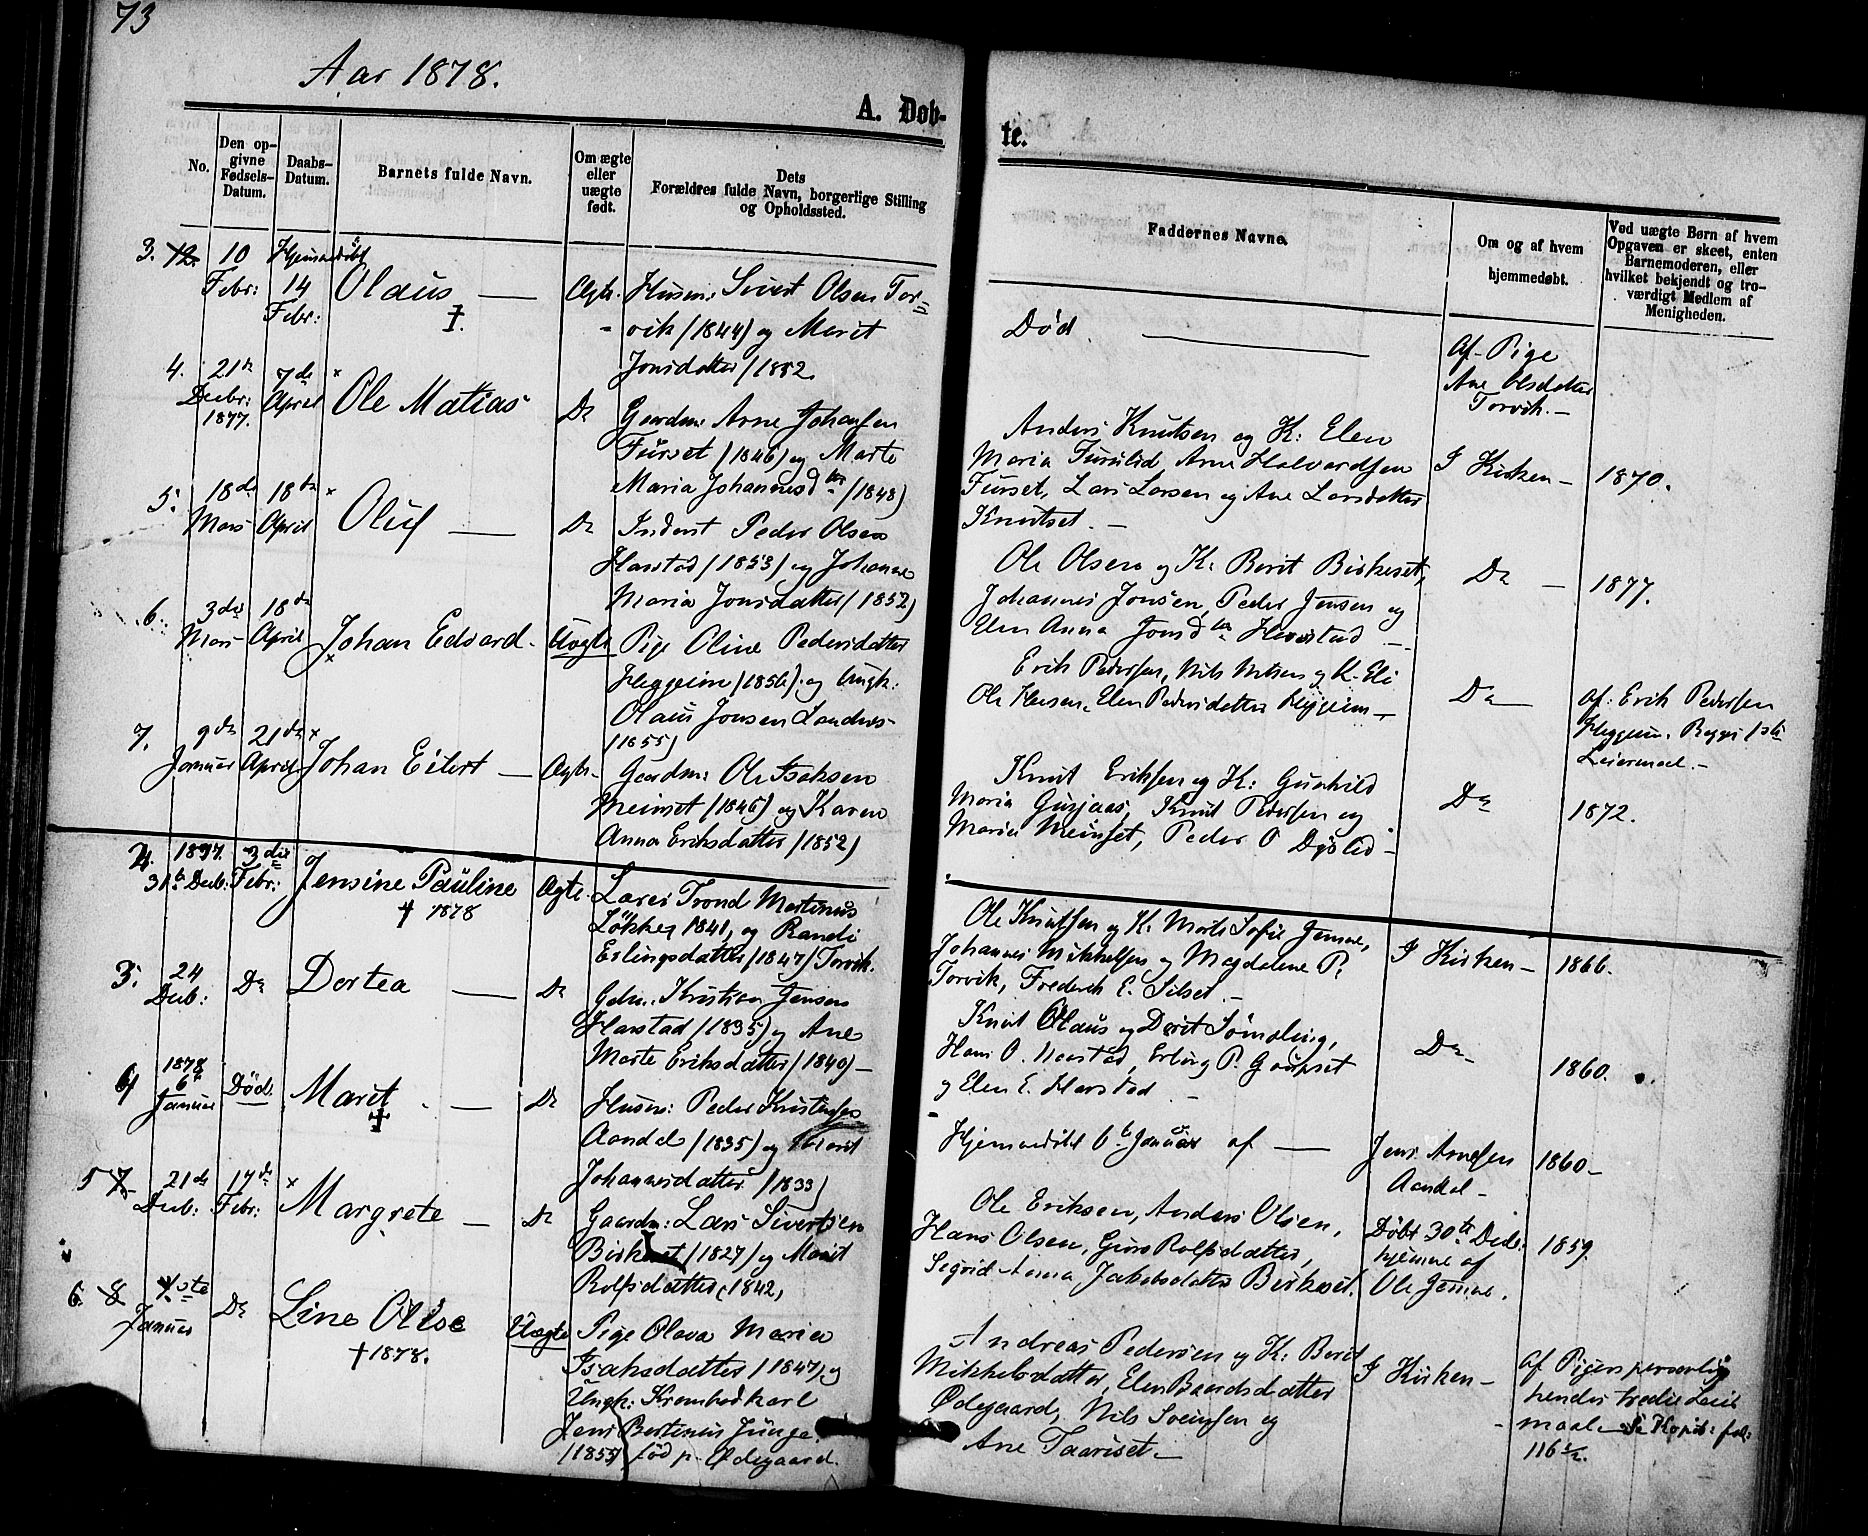 73
Aar 1878.
A. Døb-
te.
No.
Den op-
givne
Fødsels-
Datum.
Daabs-
Datum.
Barnets fulde Navn.
Om ægte
eller
uægte
født.
Dets
Forældres fulde Navn, borgerlige Stilling
og Opholdssted.
Faddernes Navne.
Om og af hvem
hjemmedøbt.
Ved uægte Børn af hvem
Opgaven er skeet, enten
Barnemoderen, eller
hvilket bekjendt og tro-
værdigt Medlem af
Menigheden.
3. 10 Febr: Hjemmedöbt 14 Febr: Olaus — Ægte.
Husm: Sivert Olsen Tor=
vik (1844) og Marit
Jonsdatter (1852
Død —
Af Pige
Ane Olsdatter
Torvik. —
4. 21de Decbr: 1877. 7de April Ole Matias Do
Gaardm: Arne Johansen
Furset (1846) og Marte
Maria Johannesdtr (1848)
Anders Knutsen og K: Elen
Maria Furulid, Arne Halvardsen
Furset, Lars Larsen og Ane Larsdatter
Knutset. —
I Kirken — 1870.
5. 18de Mars 18de April Oluf — Do
Inderst Peder Olsen
Harstad (1853) og Johanne
Maria Jonsdatter (1852)
Ole Olsen og K: Berit Birkeset,
Johannes Jonsen, Peder Jensen og
Anna Jonsdtr Harstad —
Do — 1877.
6. 3die Mars 18de April Johan Edvard. Uægte
Pige Oline Pedersdatter
Heggeim (1856). og Ungk:
Olaus Jonsen
(1855)
Erik Pedersen, Nils Nilsen og K. Eli
Ole Hansen, Elen Pedersdatter Heggeim —
Do —
af: Erik Pedersen
Heggeim. Begges 1ste
Leiermaal. —
7. 9de Januar 21de April Johan Eilert — Ægte.
Gaardm: Ole Isaksen
Meinset (1846) og Karen
Anna Eriksdatter (1852)
Knut Eriksen og K: Gunhild
Maria Gusjaas, Knut Pedersen og
Maria Meinset, Peder O
Do 1872.
2. 1877. 31te Decb: 3die Febr: Jensine Pauline Ægte.
† 1878
Lars Trond Martinus
Løkke, 1841, og Randi
Erlingsdatter (1847) Torvik.
Ole Knutsen og K: Marte Sofie Jemne,
Johannes Mikkelsen og Magdalene P.
Torvik, Frederik E. Silset. —
I Kirken — 1866.
3. 24 Decb: Do Dortea — Do
Gdm. Kristian Jensen
Harstad (1835) og Ane
Marte Eriksdatter (1840) —
Knut Olaus og Berit
Hans O. Harstad, Erling P. Goupset
og Elen E. Harstad —
Do — 1860.
4 1878 6te Januar Død. Marit — Do
Husm: Peder Kristensen
Aandal (1835) og Marit
Johannesdatter (1833)
Hjemmedöbt 6te Januar af —
Jens Arnesen
Aandal —
1860 —
5 7. 21de Decb: 17de Febr: Margrete — Do
Gaardm: Lars Sivertsen
Birkeset (1827) og Marit
Rolfsdatter (1842,
Ole Eriksen, Anders Olsen,
Hans Olsen, Guro Rolfsdatter,
Segrid Anna Jakobsdatter Birkeset.
Døbt 30te Decb:
hjemme af
Ole Jemne.
1859.
6. 8 1ste Januar Do Line Olise Uægte
† 1878.
Pige Olava Maria
Isaksdatter (1847) og
Ungk: Krambodkarl
Jens Bertinius Junge.
(1855) fød p. Ødegaard.
Andreas Pedersen og K: Berit
Mikkelsdatter, Elen Baardsdatter
Ødegaard, Nils Sveinsen og
Ane Taariset —
I Kirken —
af Pigen personlig
hendes tredie Leier
maal — Se Kopib: fol:
116 1/2.